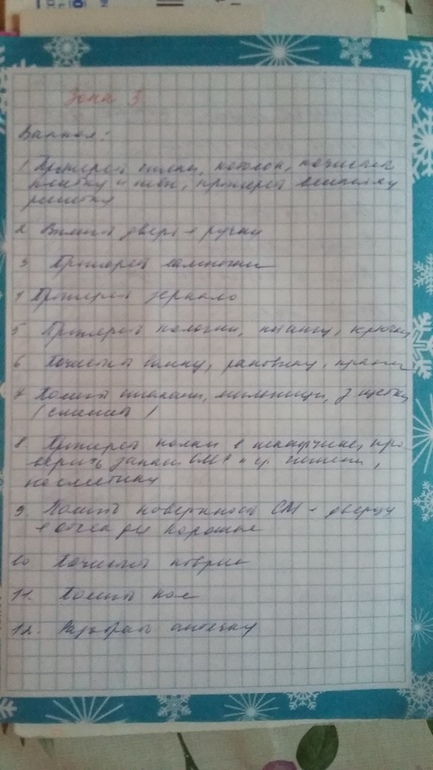 Зона 3
Ванная:
1. Протереть стены, потолок, почистить
плитку и швы, протереть
решетку
2 Вымыть дверь + ручки
3 Протереть лампочки
4 Протереть зеркало
5 Протереть полочки, штангу, крючки
6 Почистить ванну, раковину, краны
7 Помыть стаканы, мыльницы, з. щетки
(сменить)
8 Протереть полки в шкафчике, про
верить запасы и
косметики
9. Помыть поверхность СМ + дверцу
+ отсек для порошка
10 Почистить коврик
11. Помыть пол
12. Разобрать аптечку